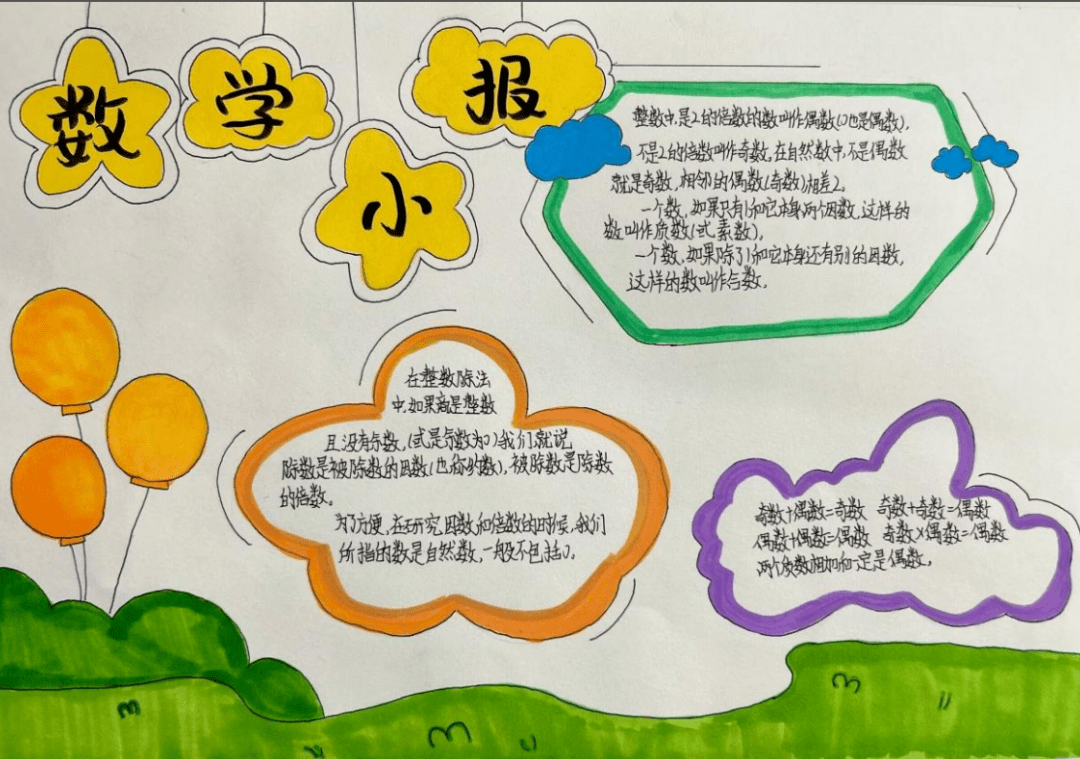 数学小报
整数中,是2的倍数的数叫作偶数(0也是偶数),
不是2的倍数叫作奇数,在自然数中,不是偶数
就是奇数,相邻的偶数(奇数)相差2。
一个数,如果只有1和它本身两个因数,这样的
数叫作质数(或素数)。
一个数,如果除了1和它本身还有别的因数,
这样的数叫作合数。
在整数除法
中,如果商是整数
且没有余数,(或是余数为0)我们就说
除数是被除数的因数(也称约数),被除数是除数
的倍数。
为了方便,在研究因数和倍数的时候,我们
所指的数是自然数,一般不包括0。
奇数+偶数=奇数 奇数+奇数=偶数
偶数+偶数=偶数 奇数×偶数=偶数
两个质数相加和一定是偶数。